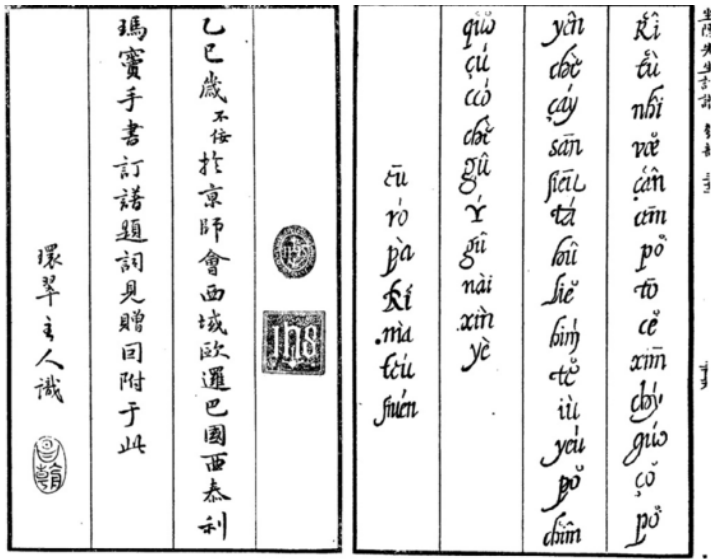 坐隱先生訂譜
kî tù nhî vœ̌ çân cēm pǒ tō cě xīm chý gúo çǒ pǒ
yên chě çáy sān siēu tá hiû siě him tě iù yeú pǒ chîm
qúo çú ccó chě gû ý gû nài xìn yè
ēu ró pà kí mà teú siuén
IHS
乙巳歲不佞於京師會西域歐邏巴國西泰利
瑪竇手書訂譜題詞見贈囙附于此
環翠主人識